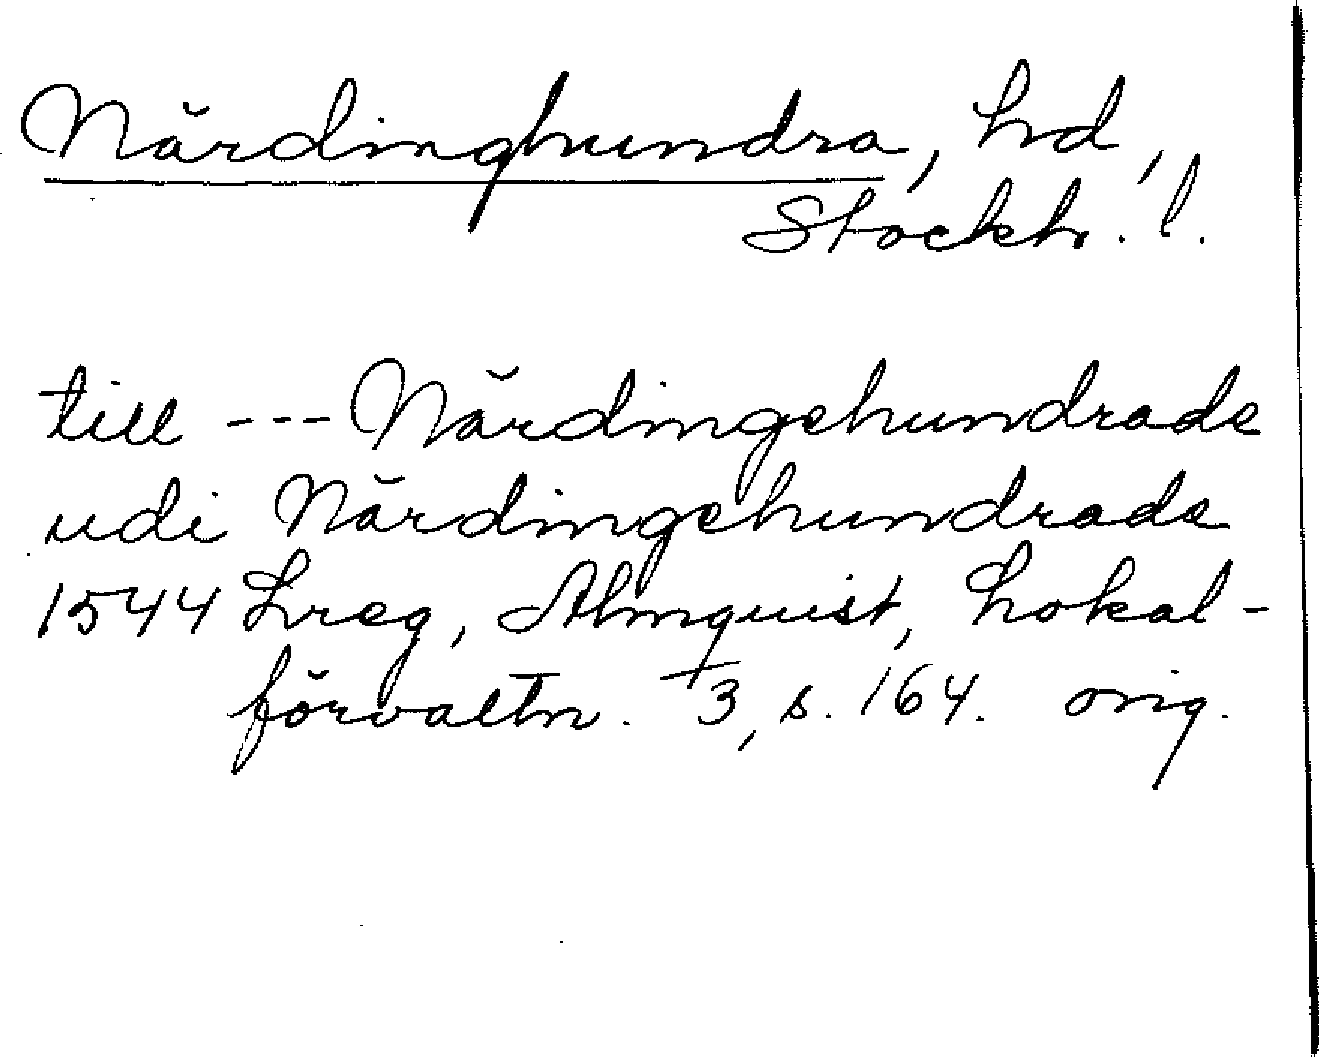 Närdinghundra, hd,
Stockh. l.
till --- Närdingehundrade
udi Närdingehundrade
1544 Lreg, Almquist, Lokal-
förvaltn. 3, s. 164. orig.